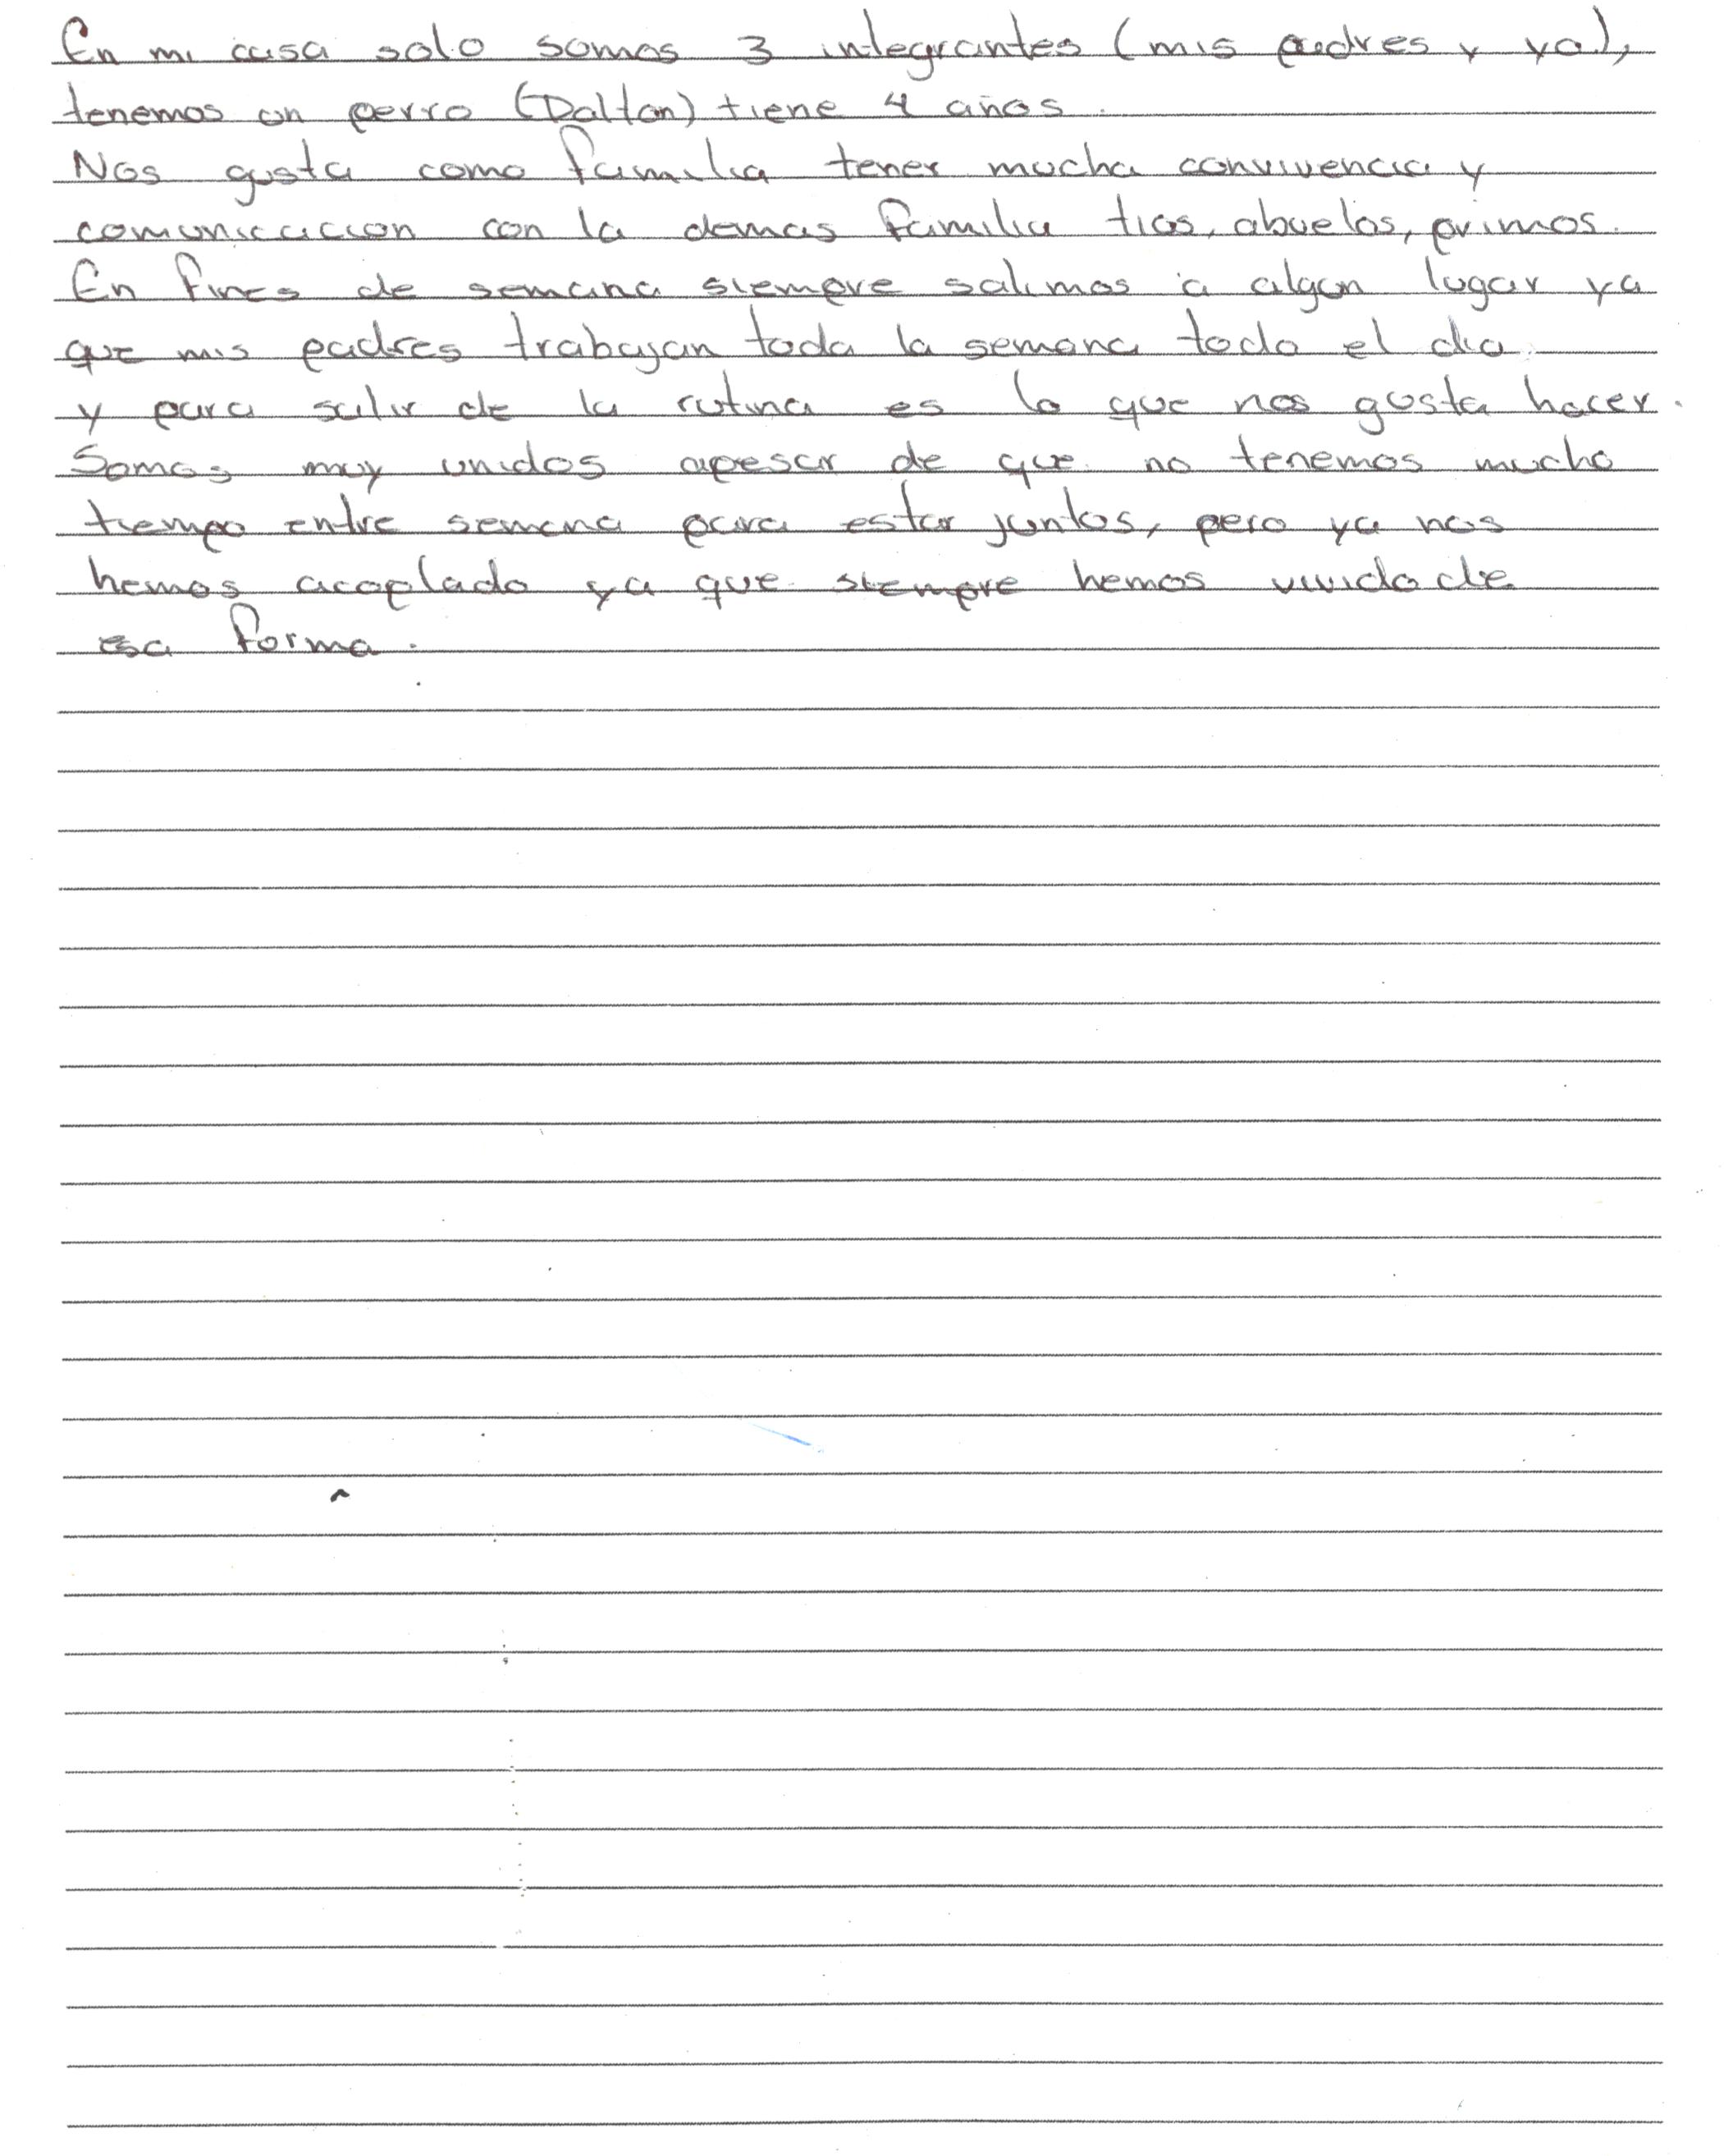 En mi casa solo somos 3 integrantes (mis padres y yo),
tenemos un perro (Dalton) tiene 4 años.
Nos gusta como familia tener mucha convivencia y
comunicacion con la demas familia tios, abuelos, primos.
En fines de semana siempre salimos a algun lugar ya
que mis padres trabajan toda la semana todo el dia
y para salir de la rutina es lo que nos gusta hacer.
Somos muy unidos apesar de que no tenemos mucho
tiempo entre semana para estar juntos, pero ya nos
hemos acoplado ya que siempre hemos vivido de
esa forma.